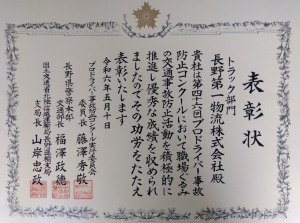 表彰状
トラック部門
長野第一物流株式会社殿
貴社は第四十六回プロドライバー事故
防止コンクールにおいて職場ぐるみ
の交通事故防止活動を積極的に
推進し優秀な成績を収められ
ましたのでその功労をたたえ
表彰いたします
令和六年五月十日
プロドライバー事故防止コンクール実行委員会
委員長 藤澤秀敬
長野県警察本部
交通部長 福澤政徳
国土交通省北陸信越運輸局長野運輸支局
支局長 山岸忠政